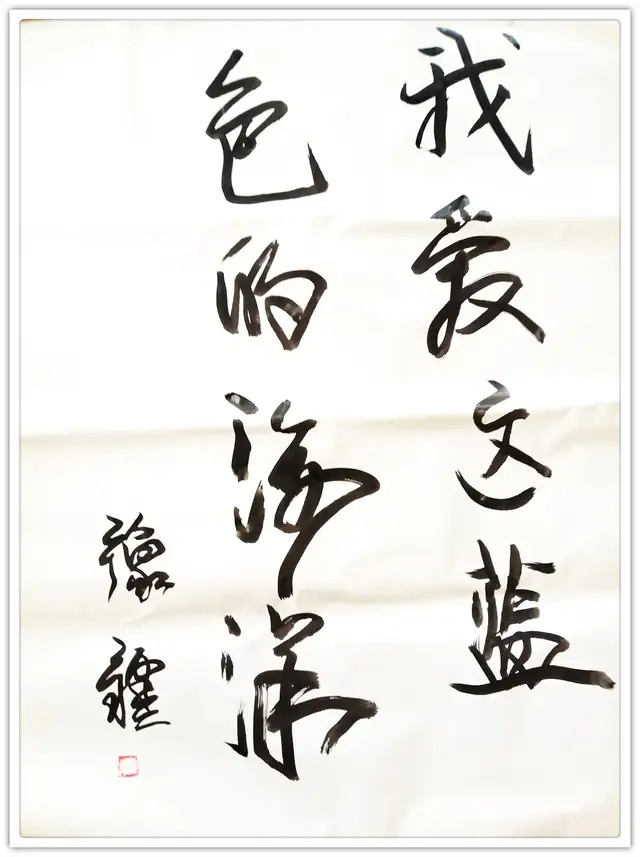 我爱这蓝
色的海洋
豫疆